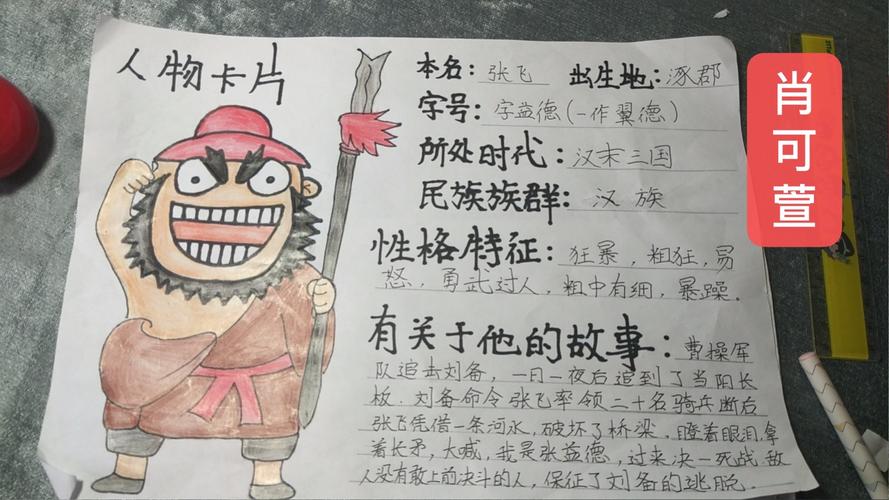 人物卡片
本名：张飞 出生地：涿郡
字号：字益德(一作翼德)
所处时代：汉末三国
民族族群：汉族
性格特征：狂暴，粗狂，易
怒，勇武过人，粗中有细，暴躁．
有关于他的故事：曹操军
队追击刘备，一日一夜后追到了当阳长
板．刘备命令张飞率领二十名骑兵断后
张飞凭借一条河水，破坏了桥梁，瞪着眼泪，拿
着长矛，大喊，我是张益德，过来决一死战．敌
人没有敢上前决斗的人，保证了刘备的逃脱．
肖可萱